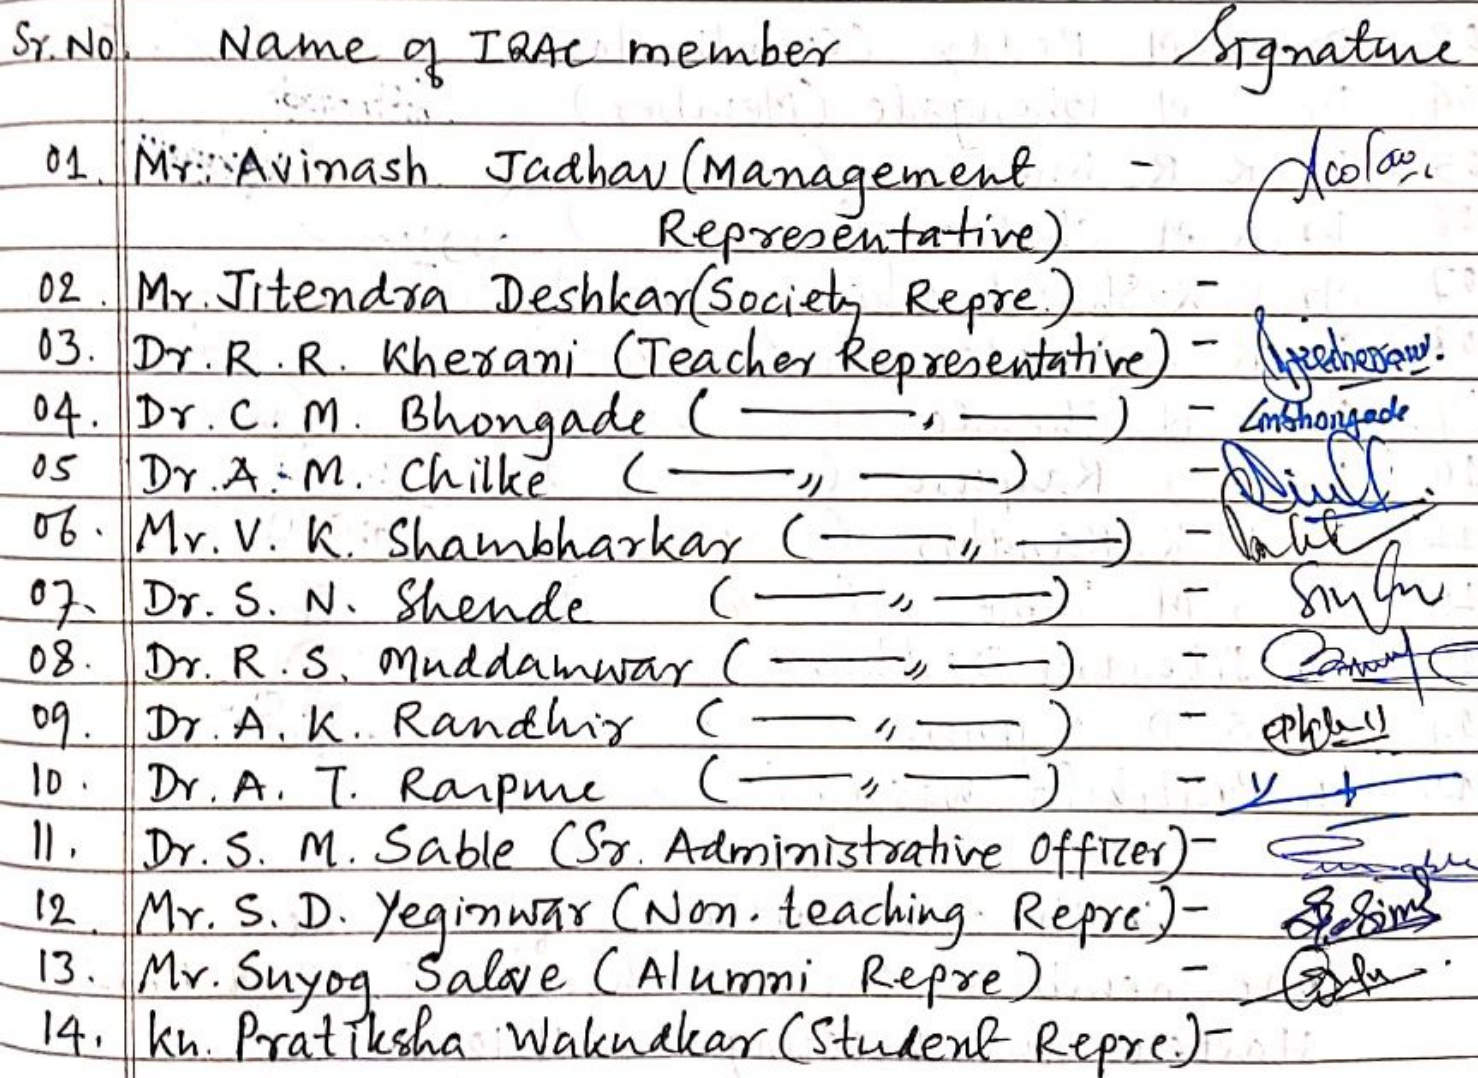 Sr. No. Name of IQAC member Signature
01. Mr. Avinash Jadhav (Management -
Representative)
02. Mr. Jitendra Deshkar (Society Repre.) -
03. Dr. R. R. Kherani (Teacher Representative) -
04. Dr. C. M. Bhongade ( —— " —— ) - Cmbhongade
05 Dr. A. M. Chilke ( —— " —— ) -
06. Mr. V. K. Shambharkar ( —— " —— ) -
07. Dr. S. N. Shende ( —— " —— ) -
08. Dr. R. S. Muddamwar ( —— " —— ) -
09. Dr. A. K. Randhir ( —— " —— ) -
10. Dr. A. T. Raipure ( —— " —— ) -
11. Dr. S. M. Sable (Sr. Administrative Officer) -
12. Mr. S. D. Yeginwar (Non. teaching Repre.) -
13. Mr. Suyog Salve (Alumni Repre) -
14. Ku. Pratiksha Wakudkar (Student Repre.) -